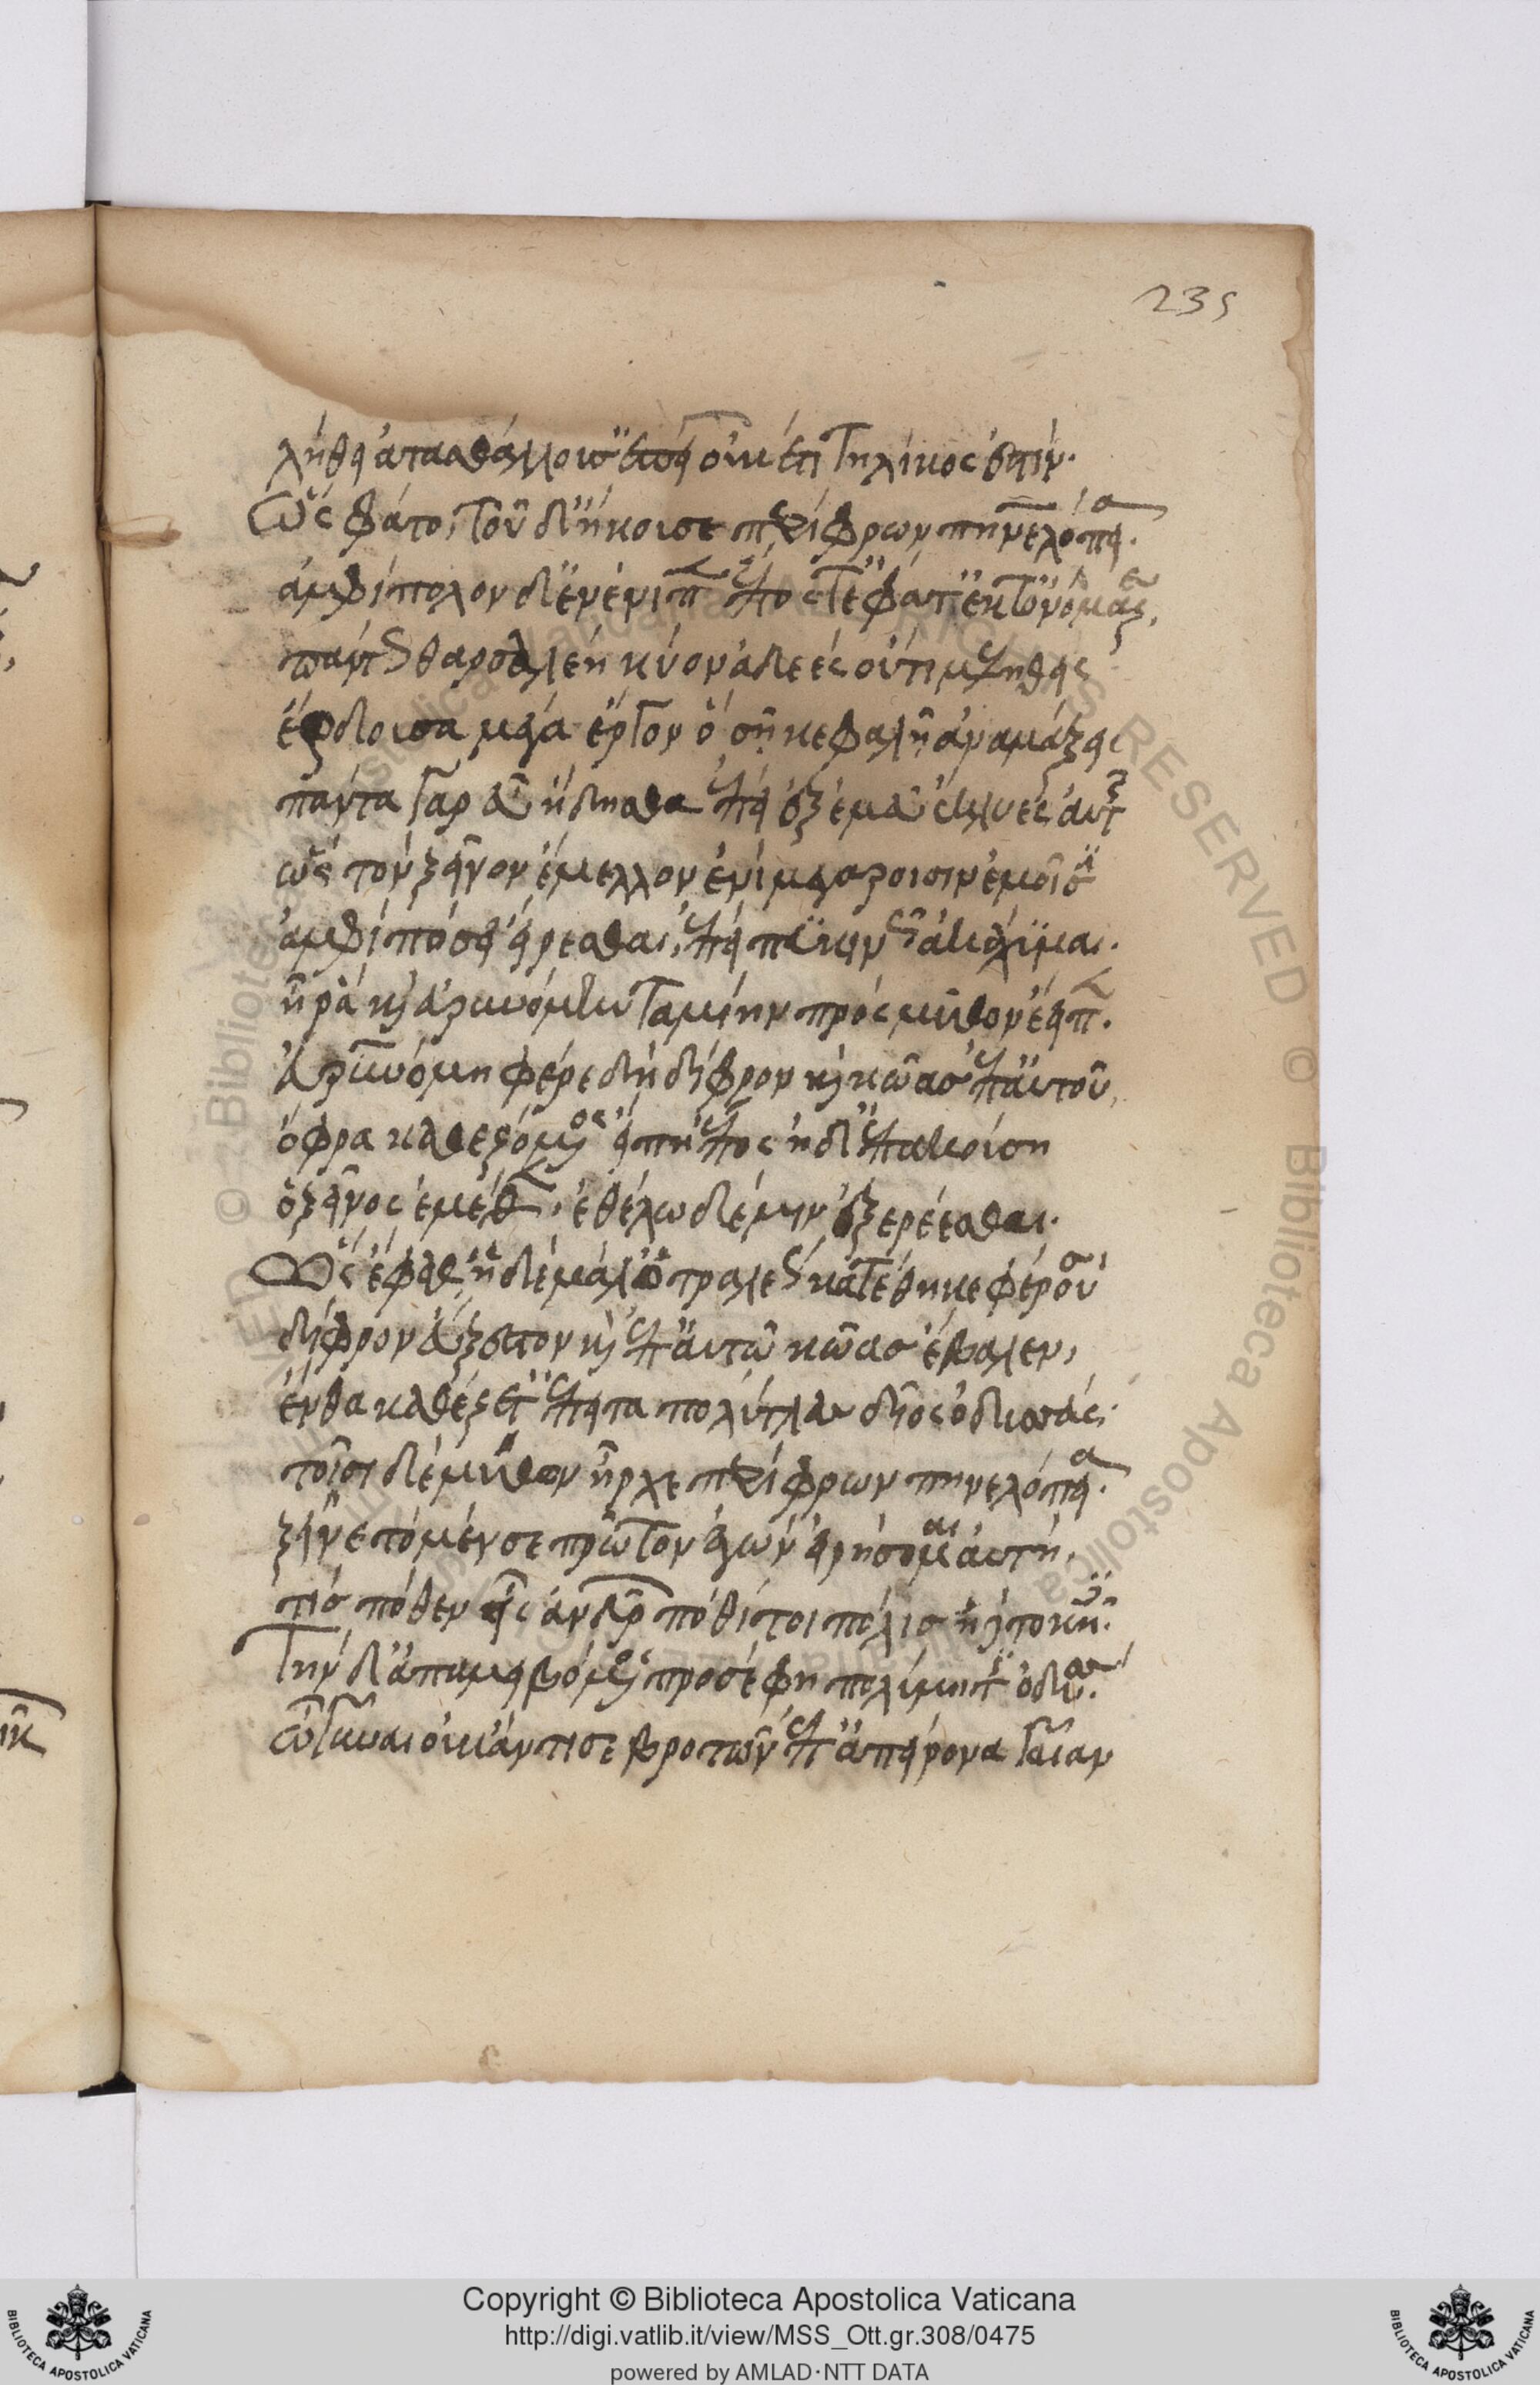 235
λήθει ἀτασθάλλουσ' ἐπεὶ οὐκέτι τηλίκος ἐστίν.
ὣς φάτο, τοῦ δ' ἤκουσε περίφρων πηνελόπεια.
ἀμφίπολον δ' ἐνένιπεν ἔπος τ' ἔφατ' ἔκ τ' ὀνόμαζεν,
πάντως θαρσαλέη κύον ἀδεές οὔτι με λήθεις
ἔρδουσα μέγα ἔργον ὃ σῇ κεφαλῇ ἀναμάξεις
πάντα γὰρ εὖ ἤδησθα ἐπεὶ ἐξ ἐμεῦ ἔκλυες αὐτῆς
ὡς τὸν ξεῖνον ἔμελλον ἐνὶ μεγάροισιν ἐμοῖσιν
ἀμφὶ πόσει εἴρεσθαι, ἐπεὶ πυκινῶς ἀκάχημαι.
ἦ ῥα καὶ εὐρυνόμην ταμίην πρὸς μῦθον ἔειπεν.
εὐρυνόμη φέρε δὴ δίφρον καὶ κῶας ἐπ' αὐτοῦ,
ὄφρα καθεζόμενος εἴπῃ ἔπος ἠδ' ἐπακούσῃ
ὁ ξεῖνος ἐμέθεν, ἐθέλω δέ μιν ἐξερέεσθαι.
ὣς ἔφαθ' ἡ δὲ μάλ' ὀτραλέως κατέθηκε φέρουσα
δίφρον ἐΰξεστον καὶ ἐπ' αὐτῷ κῶας ἔβαλεν,
ἔνθα καθέζετ' ἔπειτα πολύτλας δῖος ὀδυσσεύς.
τοῖσι δὲ μύθων ἦρχε περίφρων πηνελόπεια.
ξεῖνε τὸ μέν σε πρῶτον ἐγὼν εἰρήσομαι αὐτή,
τίς πόθεν εἰς ἀνδρῶν πόθι τοι πόλις ἠδὲ τοκῆες.
τὴν δ' ἀπαμειβόμενος προσέφη πολύμητις ὀδυσσεύς.
ὦ γύναι οὐκ ἄν τίς σε βροτῶν ἐπ' ἀπείρονα γαῖαν
Copyright © Biblioteca Apostolica Vaticana
http://digi.vatlib.it/view/MSS_Ott.gr.308/0475
powered by AMLAD·NTT DATA